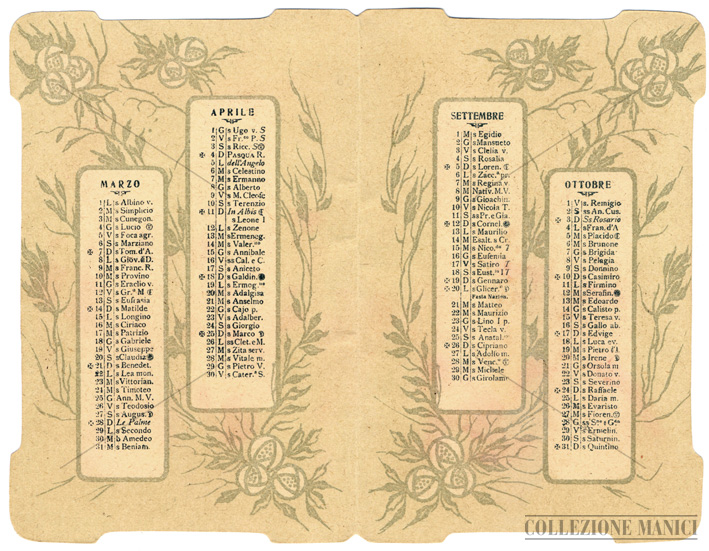 MARZO
1 L s Albino v.
2 M s Simplicio
3 M s Cunegon.
4 G s Lucio
5 V s Foca agr.
6 S s Marziano
✠ 7 D s Tom. d'A.
8 L s Giov. d D.
9 M s Franc. R.
10 M s Provino
11 G s Eraclio v.
12 V s Gr.º M
13 S s Eufrasia
✠ 14 D s Matilde
15 L s Longino
16 M s Ciriaco
17 M s Patrizio
18 G s Gabriele
19 V s Giuseppe
20 S s Claudia
✠ 21 D s Benedet.
22 L s Lea mon.
23 M s Vittorian.
24 M s Timoteo
25 G Ann. M. V.
26 V s Teodosio
27 S s Augus.
✠ 28 D Le Palme
29 L s Secondo
30 M b Amedeo
31 M s Beniam.
APRILE
1 G s Ugo v. S
2 V s Fr.co P. S
3 S s Ricc. S
✠ 4 D PASQUA R.
5 L dell'Angelo
6 M s Celestino
7 M s Ermanno
8 G s Alberto
9 V s M. Cleofe
10 S s Terenzio
✠ 11 D In Albis
s Leone I
12 L s Zenone
13 M s Ermeneg.
14 M s Valer.no
15 G s Annibale
16 V ss Cal. e C.
17 S s Aniceto
✠ 18 D s Galdin.
19 L s Ermog.ne
20 M s Adalgisa
21 M s Anselmo
22 G s Cajo p.
23 V s Adalber.
24 S s Giorgio
✠ 25 D s Marco
26 L ss Clet. e M.
27 M s Zita serv.
28 M s Vitale m.
29 G s Pietro V.
30 V s Cater.a S.
SETTEMBRE
1 M s Egidio
2 G s Mansueto
3 V s Clelia v.
4 S s Rosalia
✠ 5 D s Loren.
6 L s Zacc.a pr.
7 M s Regina v.
8 M Nativ. M. V.
9 G s Gioachin.
10 V s Nicola T.
11 S ss Pr. e Gia.
✠ 12 D s Cornel.
13 L s Maurilio
14 M Esalt. s Cr.
15 M s Nico.de 7
16 G s Eufemia
17 V s Satiro 7
18 S s Eust.io 17
✠ 19 D s Gennaro
✠ 20 L s Glicer.o
Festa Nazion.
21 M s Matteo
22 M s Maurizio
23 G s Lino I p.
24 V s Tecla v.
25 S s Anatal.
✠ 26 D s Cipriano
27 L s Adolfo m.
28 M s Venc.
29 M s Michele
30 G s Girolamo
OTTOBRE
1 V s. Remigio
2 S ss An. Cus.
✠ 3 D s Rosario
4 L s Fran. d'A
5 M s Placido
6 M s Brunone
7 G s Brigida
8 V s Pelagia
9 S s Donnino
✠ 10 D s Casimiro
11 L s Firmino
12 M s Serafin.
13 M s Edoardo
14 G s Calisto p.
15 V s Teresa v.
16 S s Gallo ab.
✠ 17 D s Edvige
18 L s Luca ev.
19 M s Pietro d'A
20 M s Irene
21 G s Orsola m
22 V s Donato v.
23 S s Severino
✠ 24 D s Raffaele
25 L s Daria m.
26 M s Evaristo
27 M s Fioren.
28 G ss
29 V s Ermelin.
30 S s Saturnin.
✠ 31 D s Quintino
COLLEZIONE MANICI